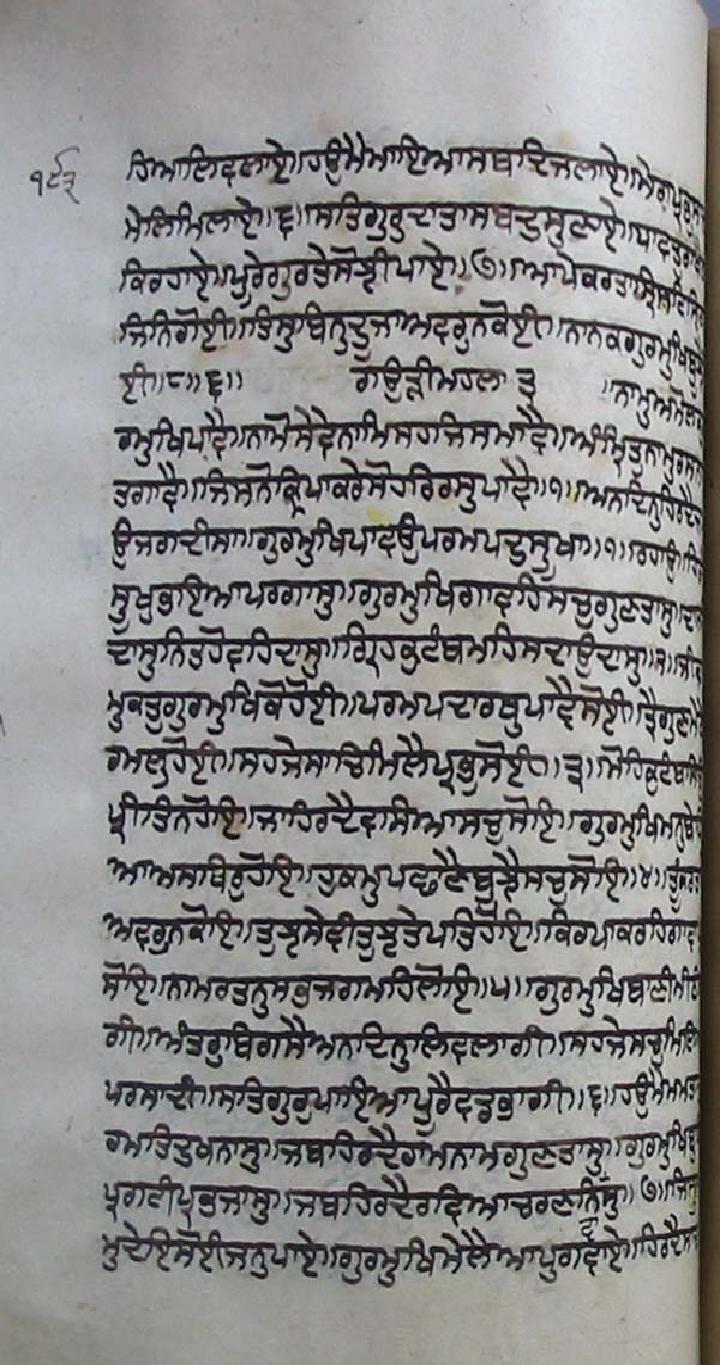 ੧੯੩
ਧਿਆਲਿਵਲਾਏ॥ਹਉਮੈਮਾਇਆਸਬਦਿਜਲਾਏ॥ਮੇਰਾਪ੍ਰਭੁ
ਮੇਲਿਮਿਲਾਏ॥੬॥ਸਤਿਗੁਰੁਦਾਤਾਸਬਦੁਸੁਣਾਏ॥ਧਾਵਤੁ
ਕਿਰਹਾਏ॥ਪੂਰੇਗੁਰਤੇਸੋਝੀਪਾਏ॥੭॥ਆਪੇਕਰਤਾਸ੍ਰਿਸਟਿ
ਜਿਨਿਗੋਈ॥ਤਿਸੁਬਿਨੁਦੂਜਾਅਵਰੁਨਕੋਈ॥ਨਾਨਕਗੁਰਮੁਖਿਬੂਝੈ
ਈ॥੮॥੬॥ ਗਉੜੀਮਹਲਾ ੩ ॥ਨਾਮੁਅਮੋਲਕੁ
ਰਮੁਖਿਪਾਵੈ॥ਨਾਮੋਸੇਵੈਨਾਮਿਸਹਜਿਸਮਾਵੈ॥ਅੰਮ੍ਰਿਤੁਨਾਮੁਰਸਨਾ
ਤਗਾਵੈ॥ਜਿਸਨੋਕ੍ਰਿਪਾਕਰੇਸੋਹਰਿਰਸੁਪਾਵੈ॥੧॥ਅਨਦਿਨੁਹਿਰਦੈਜ
ਉਜਗਦੀਸਾ॥ਗੁਰਮੁਖਿਪਾਵਉਪਰਮਪਦੁਸੂਖਾ॥੧॥ਰਹਾਉ॥ਹਿ
ਸੂਖੁਭਇਆਪਰਗਾਸੁ॥ਗੁਰਮੁਖਿਗਾਵਹਿਸਚੁਗੁਣਤਾਸੁ॥ਦਾਸ
ਦਾਸੁਨਿਤਹੋਵਹਿਦਾਸੁ॥ਗ੍ਰਿਹਕੁਟੰਬਮਹਿਸਦਾਉਦਾਸੁ॥੨॥ਜੀਵ
ਮੁਕਤੁਗੁਰਮੁਖਿਕੋਹੋਈ॥ਪਰਮਪਦਾਰਥੁਪਾਵੈਸੋਈ॥ਤ੍ਰੈਗੁਣਮੇ
ਰਮਲੁਹੋਈ॥ਸਹਜੇਸਾਚਿਮਿਲੈਪ੍ਰਭੁਸੋਈ॥੩॥ਮੋਹਕੁਟੰਬਸਿ
ਪ੍ਰੀਤਿਨਹੋਇ॥ਜਾਹਿਰਦੈਵਸਿਆਸਚੁਸੋਇ॥ਗੁਰਮੁਖਿਮਨੁਬੇਧਿ
ਆਅਸਥਿਰੁਹੋਇ॥ਹੁਕਮੁਪਛਾਣੈਬੂਝੈਸਚੁਸੋਇ॥੪॥ਤੂੰਕਰਤਾ
ਅਵਰੁਨਕੋਇ॥ਤੁਝੁਸੇਵੀਤੁਝਤੇਪਤਿਹੋਇ॥ਕਿਰਪਾਕਰਹਿਗਾਵਾ
ਸੋਇ॥ਨਾਮਰਤਨੁਸਭਜਗਮਹਿਲੋਇ॥੫॥ਗੁਰਮੁਖਿਬਾਣੀਮੀਠੀ
ਗੀ॥ਅੰਤਰੁਬਿਗਸੈਅਨਦਿਨੁਲਿਵਲਾਗੀ॥ਸਹਜੇਸਚੁਮਿਲਿ
ਪਰਸਾਦੀ॥ਸਤਿਗੁਰੁਪਾਇਆਪੂਰੈਵਡਭਾਗੀ॥੬॥ਹਉਮੈਮਮਤਾ
ਰਮਤਿਦੁਖਨਾਸੁ॥ਜਬਹਿਰਦੈਰਾਮਨਾਮਗੁਣਤਾਸੁ॥ਗੁਰਮੁਖਿਬੁ
ਪ੍ਰਗਟੀਪ੍ਰਭਜਾਸੁ॥ਜਬਹਿਰਦੈਰਵਿਆਚਰਣਨਿਵਾਸੁ॥੭॥ਜਿਸੁ
ਮੁਦੇਇਸੋਈਜਨੁਪਾਏ॥ਗੁਰਮੁਖਿਮੇਲੈਆਪੁਗਵਾਏ॥ਹਿਰਦੈਸ